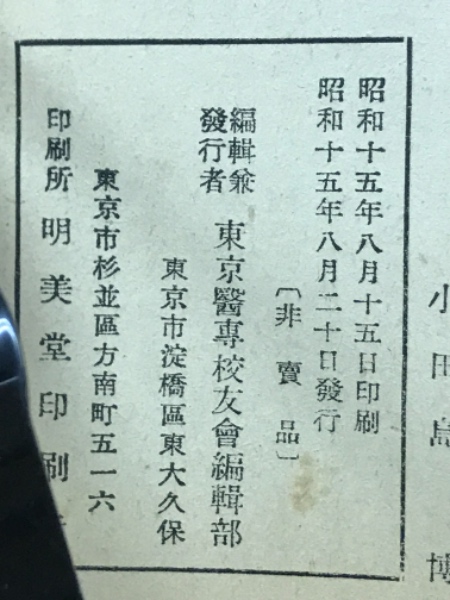 小田島博
昭和十五年八月十五日印刷
昭和十五年八月二十日發行
〔非賣品〕
編輯兼
發行者
東京醫專校友會編輯部
東京市淀橋區東大久保
東京市杉並區方南町五一六
印刷所 明美堂印刷